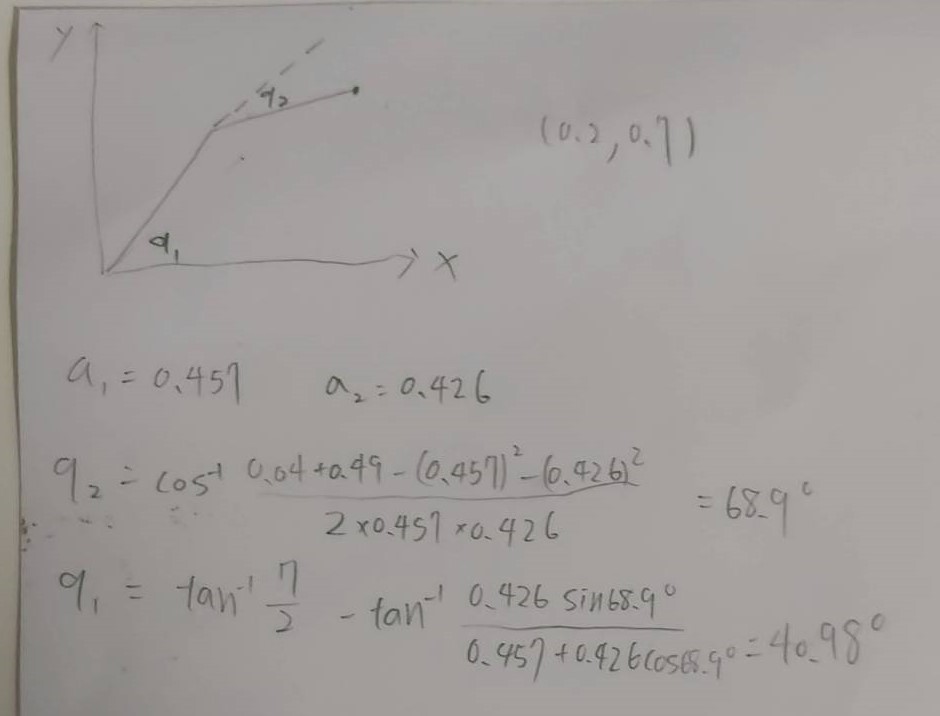 y
q₂
(0.2, 0.7)
q₁
x
a₁ = 0.457 a₂ = 0.426
q₂ = cos⁻¹ (0.04 + 0.49 - (0.457)² - (0.426)²) / (2 × 0.457 × 0.426) = 68.9°
q₁ = tan⁻¹ 7/2 - tan⁻¹ (0.426 sin68.9°) / (0.457 + 0.426cos68.9°) = 40.98°